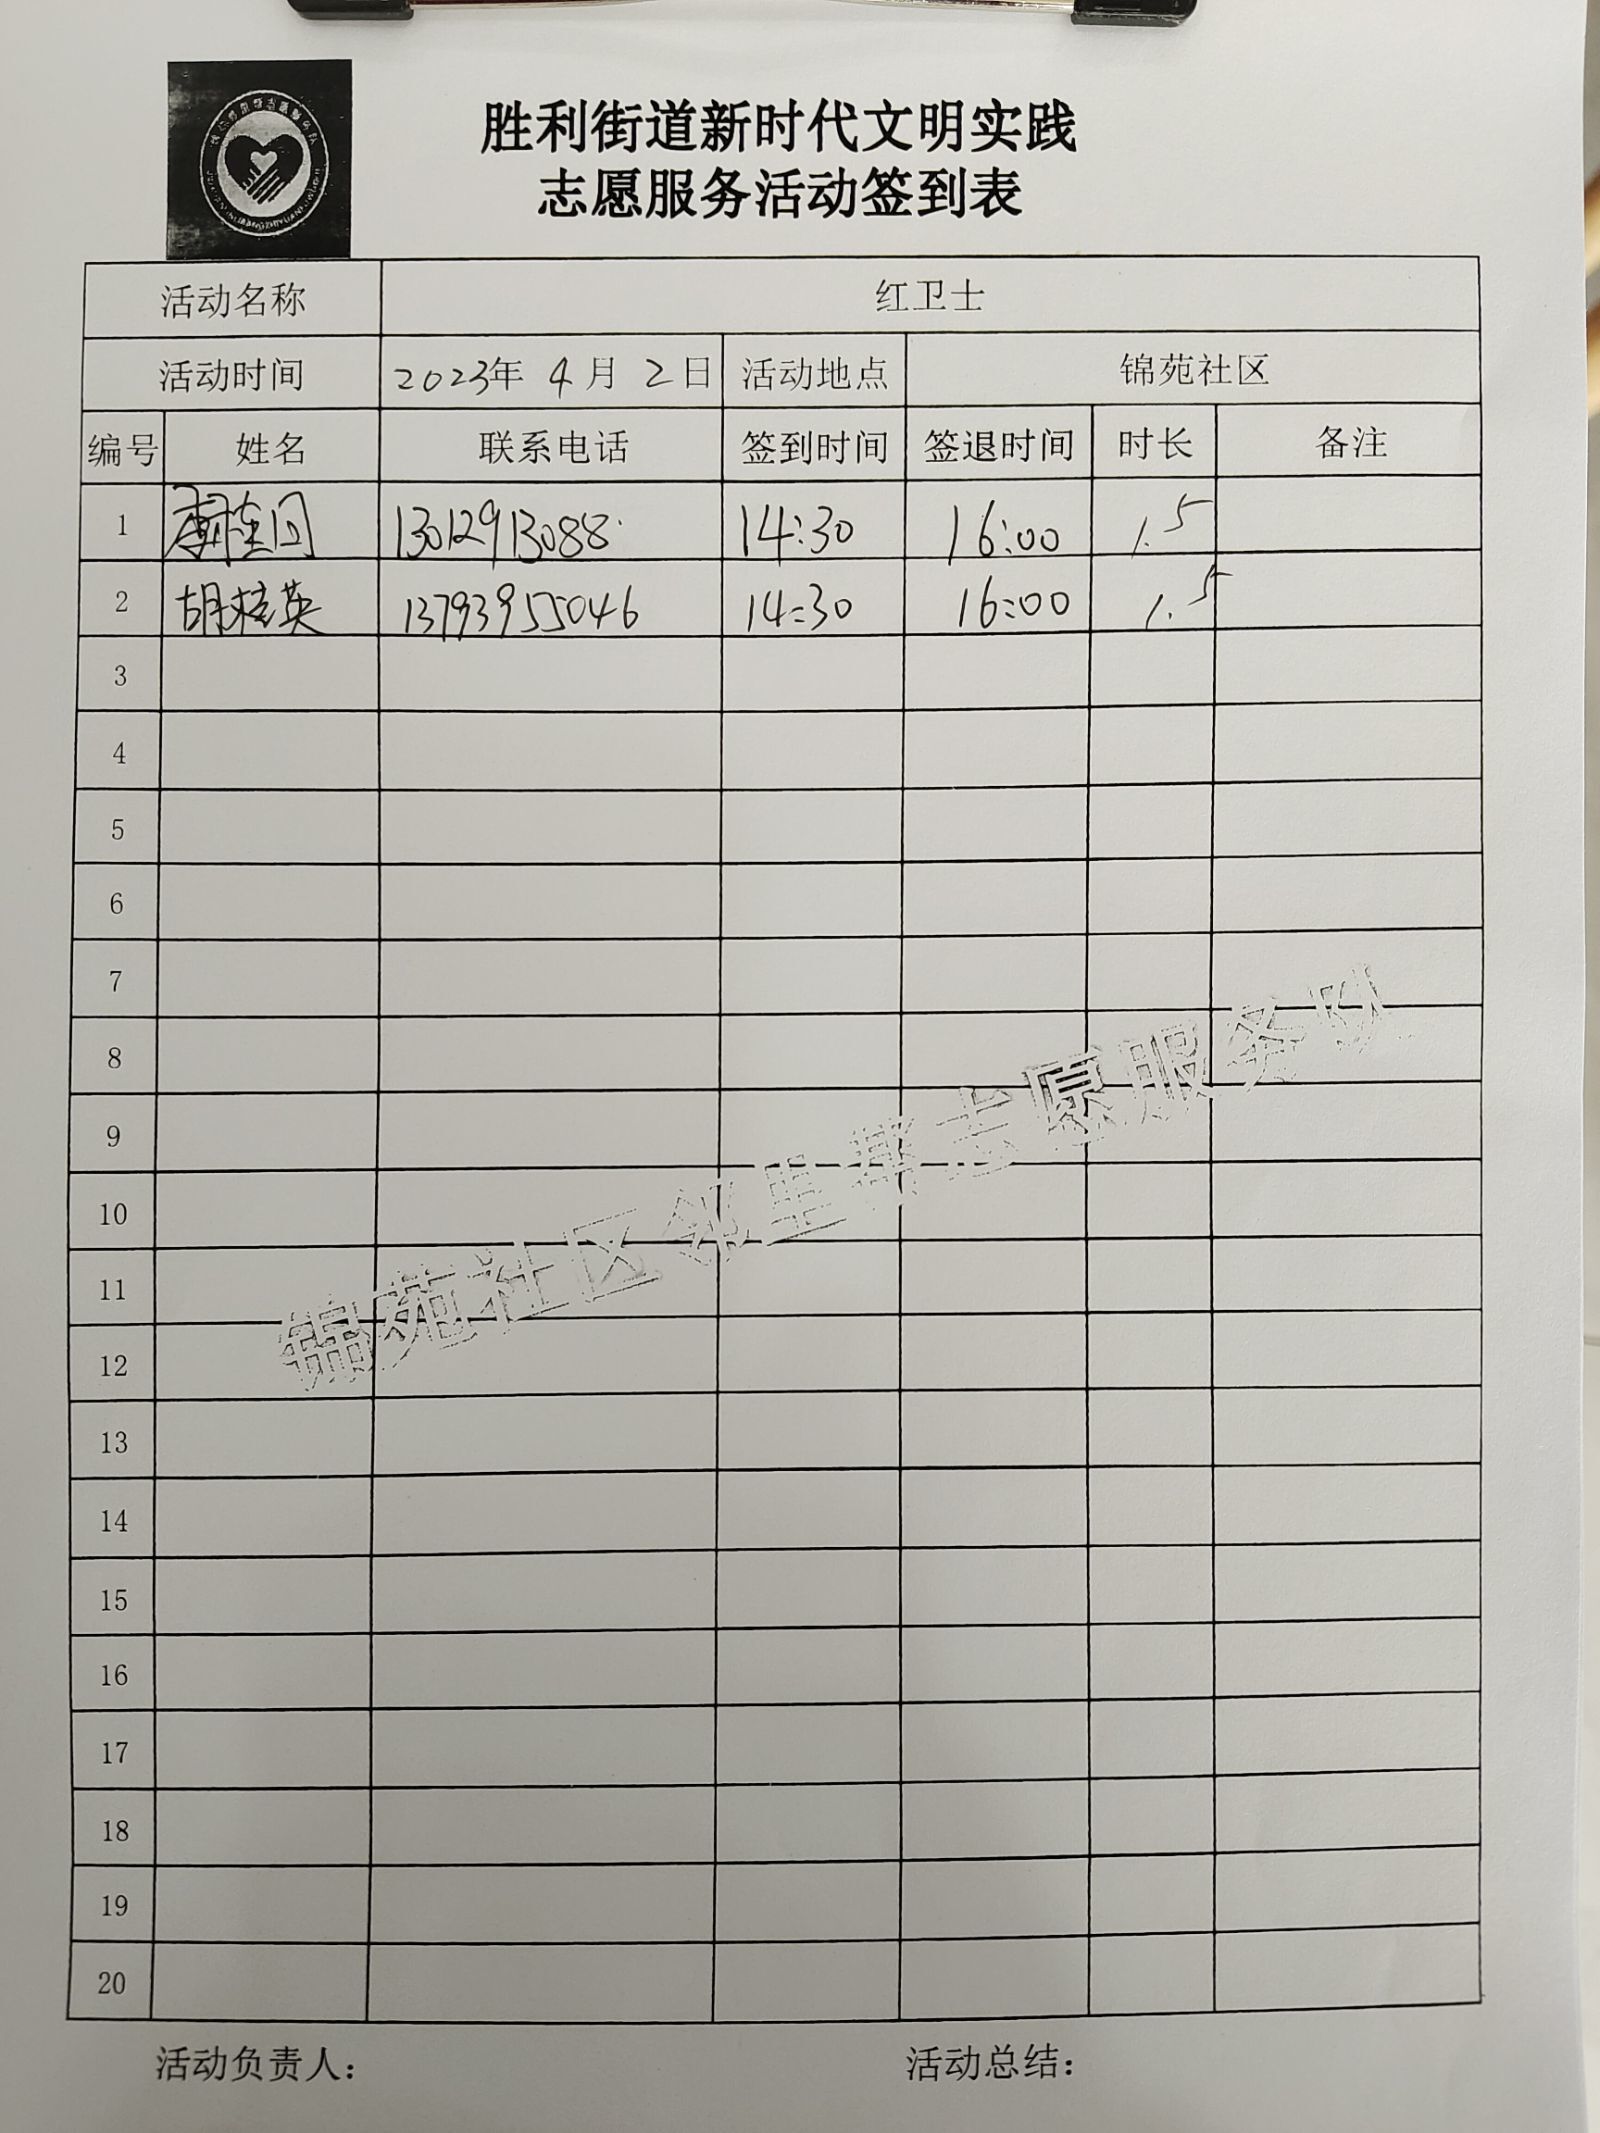 胜利街道新时代文明实践
志愿服务活动签到表
活动名称 红卫士
活动时间 2023年 4月 2日 活动地点 锦苑社区
编号 姓名 联系电话 签到时间 签退时间 时长 备注
1 13012913088 14:30 16:00 1.5
2 胡桂英 13793955046 14:30 16:00 1.5
3
4
5
6
7
8
9
10
11
12
13
14
15
16
17
18
19
20
锦苑社区邻里帮志愿服务队
活动负责人： 活动总结：